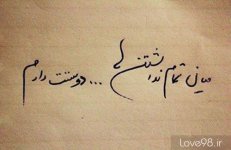 میانِ تمام نداشتن ها
...دوستت دارم
Love98.ir